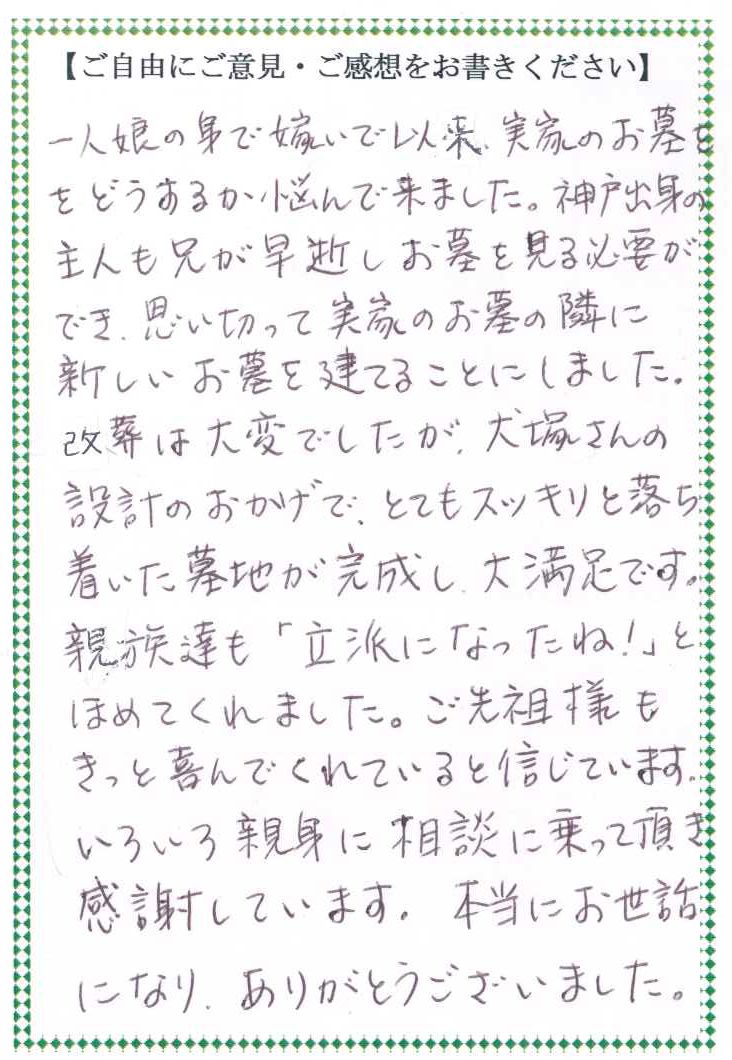 【ご自由にご意見・ご感想をお書きください】
一人娘の身で嫁いで以来、実家のお墓を
をどうするか悩んで来ました。神戸出身の
主人も兄が早逝しお墓を見る必要が
でき、思い切って実家のお墓の隣に
新しいお墓を建てることにしました。
改葬は大変でしたが、犬塚さんの
設計のおかげで、とてもスッキリと落ち
着いた墓地が完成し、大満足です。
親族達も「立派になったね!」と
ほめてくれました。ご先祖様も
きっと喜んでくれていると信じています。
いろいろ親身に相談に乗って頂き
感謝しています。本当にお世話
になり、ありがとうございました。